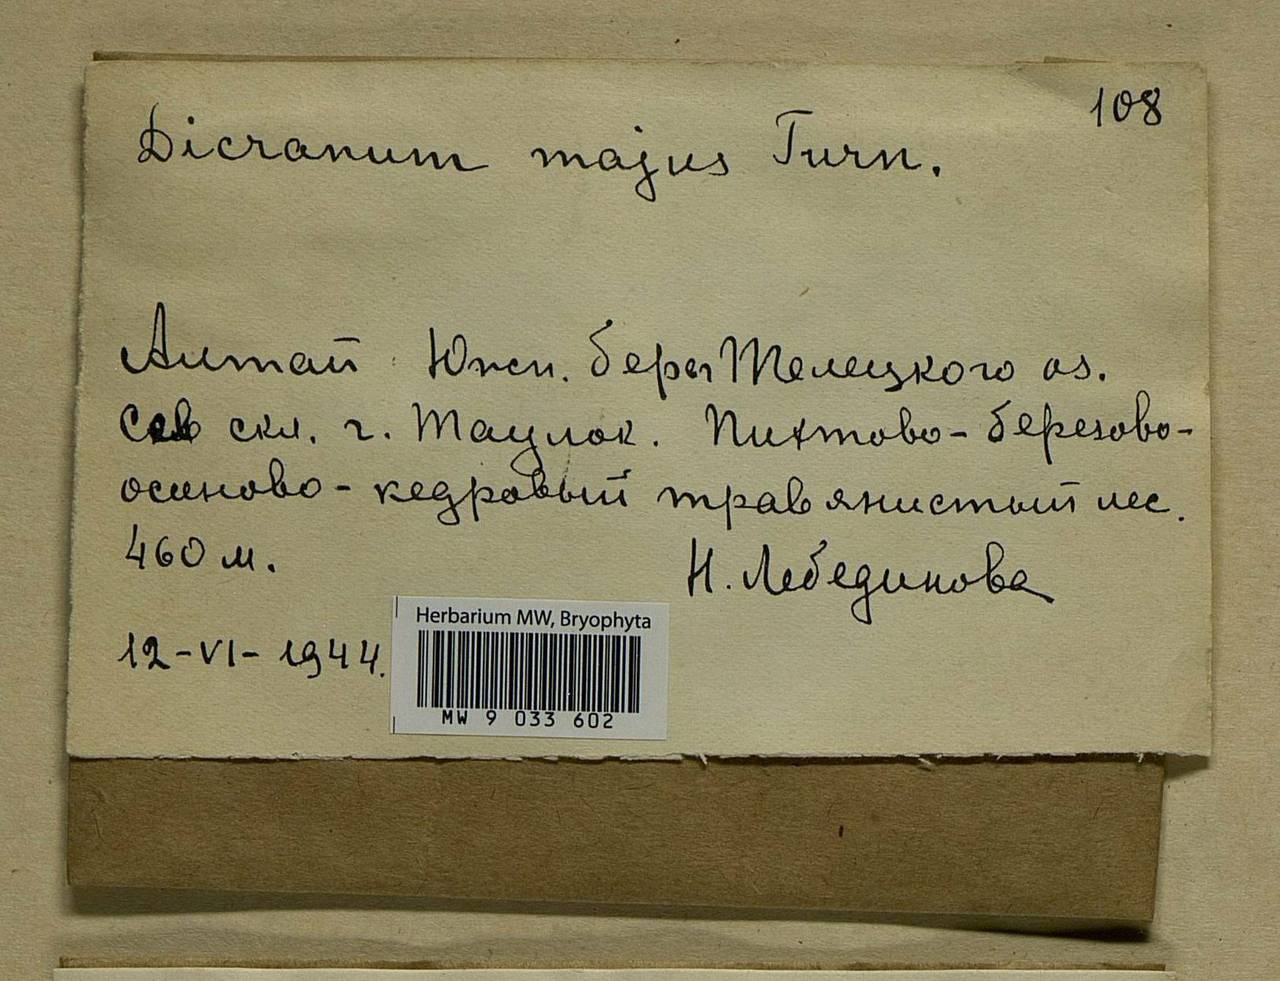 108
Dicranum majus Turn.
Алтай Южн. берег Телецкого оз.
Сев скл. г. Таулок. Пихтово-березово-
осиново-кедровый травянистый лес.
460 м. Н. Лебединова
12-VI-1944.
Herbarium MW, Bryophyta
MW 9 033 602